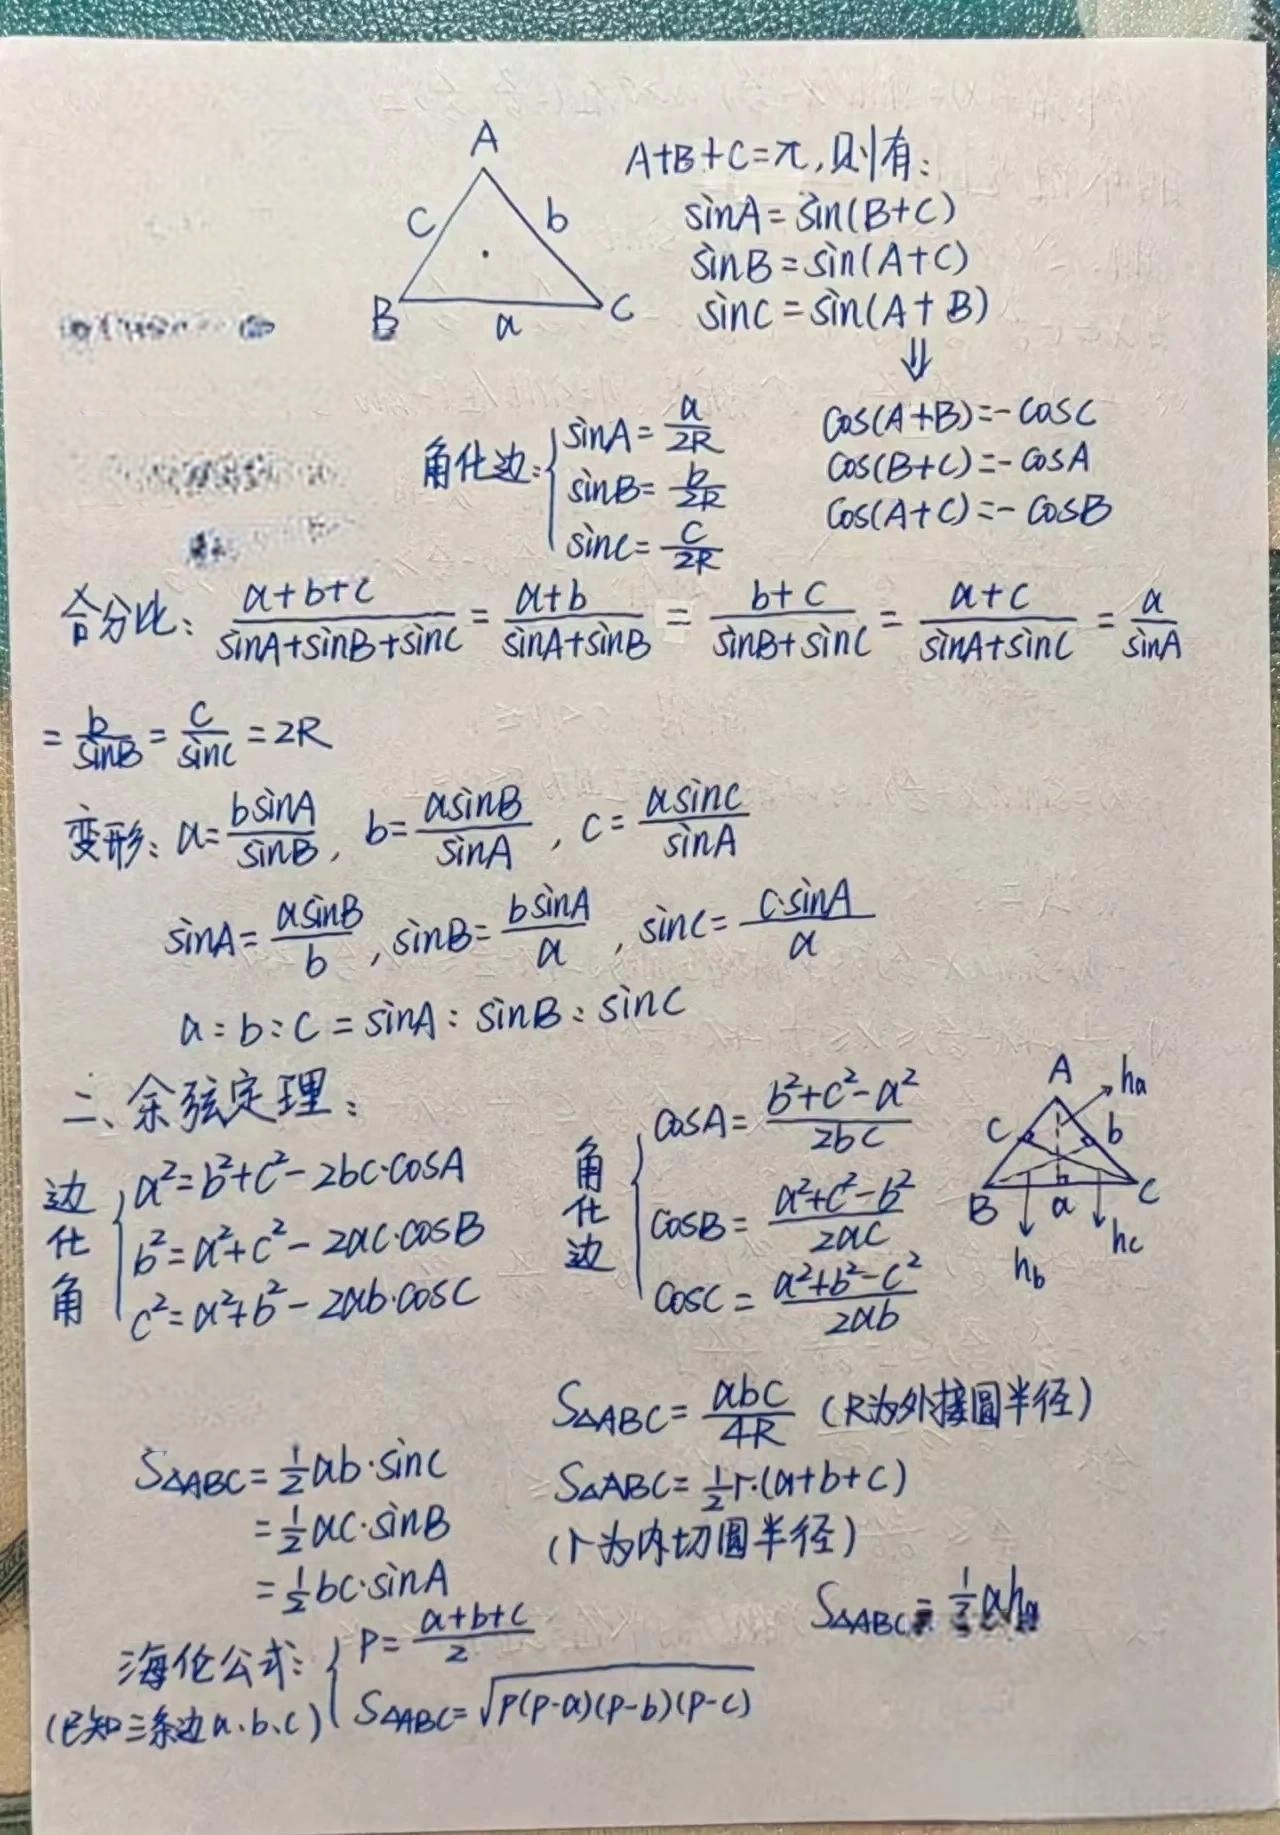 A
c b
B a C
A+B+C=π,则有:
sinA=sin(B+C)
sinB=sin(A+C)
sinC=sin(A+B)
⇓
cos(A+B)=-cosC
cos(B+C)=-cosA
cos(A+C)=-cosB
角化边:
sinA=a/2R
sinB=b/2R
sinC=c/2R
合分比: (a+b+c)/(sinA+sinB+sinC) = (a+b)/(sinA+sinB) = (b+c)/(sinB+sinC) = (a+c)/(sinA+sinC) = a/sinA
= b/sinB = c/sinC = 2R
变形: a=bsinA/sinB, b=asinB/sinA, c=asinC/sinA
sinA=asinB/b, sinB=bsinA/a, sinC=c·sinA/a
a:b:c=sinA:sinB:sinC
二、余弦定理:
边化角
a²=b²+c²-2bc·cosA
b²=a²+c²-2ac·cosB
c²=a²+b²-2ab·cosC
角化边
cosA=(b²+c²-a²)/2bc
cosB=(a²+c²-b²)/2ac
cosC=(a²+b²-c²)/2ab
A ha
c b
B a C
hb hc
S△ABC=½ab·sinC
=½ac·sinB
=½bc·sinA
S△ABC=abc/4R (R为外接圆半径)
S△ABC=½r·(a+b+c)
(r为内切圆半径)
S△ABC=½aha
海伦公式:
(已知三条边a、b、c)
P=(a+b+c)/2
S△ABC=√(P(P-a)(P-b)(P-c))